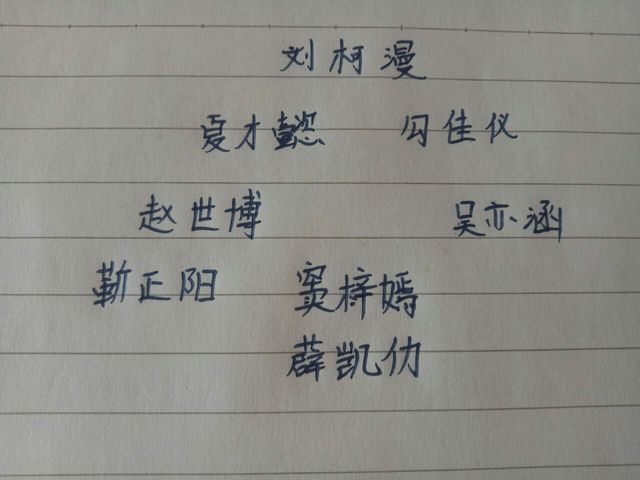 刘柯漫
夏才懿 勾佳仪
赵世博 吴亦涵
靳正阳 窦梓嫣
薛凯仂